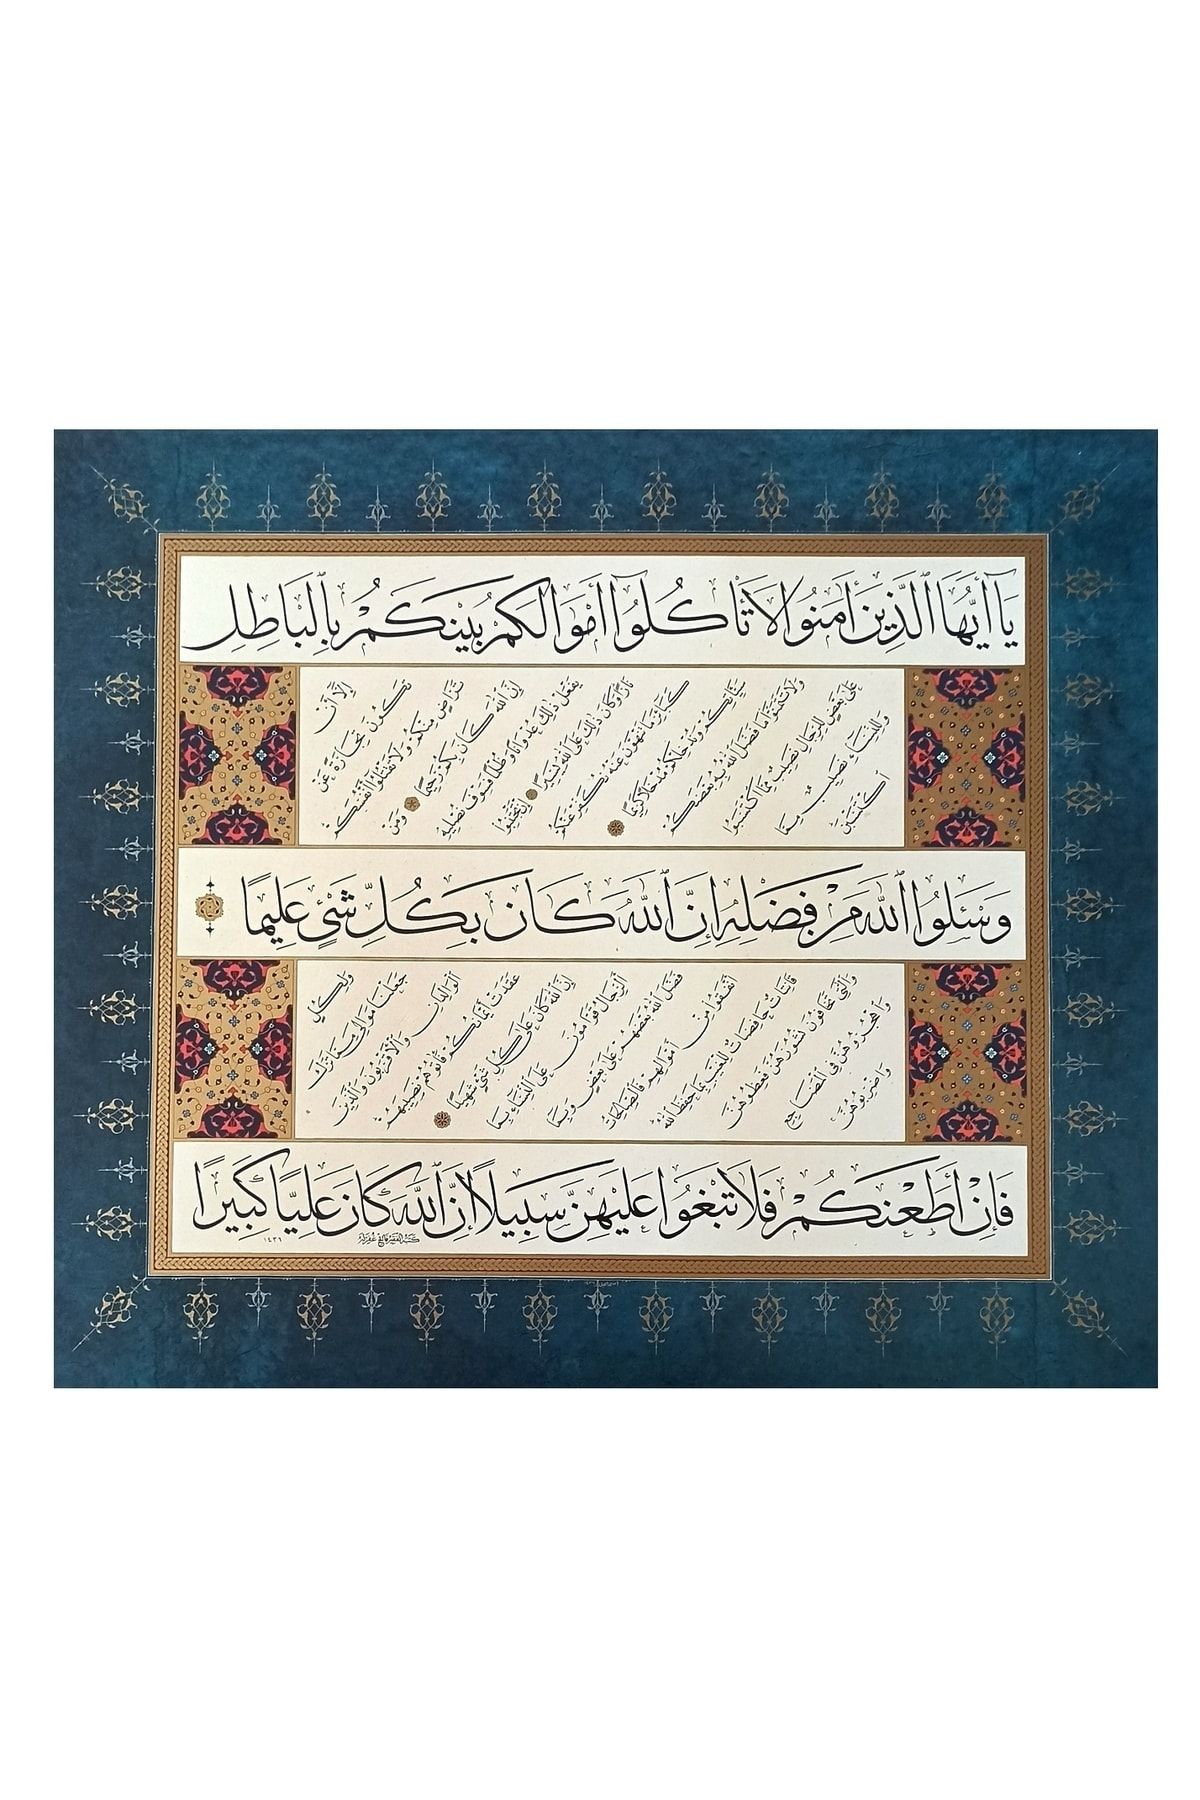 يَا أَيُّهَا ٱلَّذِينَ آمَنُوا لَا تَأْكُلُوا أَمْوَالَكُمْ بَيْنَكُمْ بِٱلْبَاطِلِ
إِلَّا أَن
تَكُونَ تِجَارَةً عَنْ
تَرَاضٍ مِنْكُمْ وَلَا تَقْتُلُوا أَنْفُسَكُمْ
إِنَّ اللهَ كَانَ بِكُمْ رَحِيمًا وَمَنْ
يَفْعَلْ ذَلِكَ عُدْوَانًا وَظُلْمًا فَسَوْفَ نُصْلِيهِ
نَارًا وَكَانَ ذَلِكَ عَلَى اللهِ يَسِيرًا إِنْ تَجْتَنِبُوا
كَبَائِرَ مَا تُنْهَوْنَ عَنْهُ نُكَفِّرْ عَنْكُمْ
سَيِّئَاتِكُمْ وَنُدْخِلْكُمْ مُدْخَلًا كَرِيمًا
وَلَا تَتَمَنَّوْا مَا فَضَّلَ اللهُ بِهِ بَعْضَكُمْ
عَلَى بَعْضٍ لِلرِّجَالِ نَصِيبٌ مِمَّا اكْتَسَبُوا
وَلِلنِّسَاءِ نَصِيبٌ مِمَّا
اكْتَسَبْنَ
وَسْـَٔلُوا ٱللهَ مِنْ فَضْلِهِ إِنَّ ٱللهَ كَانَ بِكُلِّ شَيْءٍ عَلِيمًا
وَلِكُلٍّ
جَعَلْنَا مَوَالِيَ مِمَّا تَرَكَ
الْوَالِدَانِ وَالْأَقْرَبُونَ وَالَّذِينَ
عَقَدَتْ أَيْمَانُكُمْ فَآتُوهُمْ نَصِيبَهُمْ
إِنَّ اللهَ كَانَ عَلَى كُلِّ شَيْءٍ شَهِيدًا
الرِّجَالُ قَوَّامُونَ عَلَى النِّسَاءِ بِمَا
فَضَّلَ اللهُ بَعْضَهُمْ عَلَى بَعْضٍ وَبِمَا
أَنْفَقُوا مِنْ أَمْوَالِهِمْ فَالصَّالِحَاتُ
قَانِتَاتٌ حَافِظَاتٌ لِلْغَيْبِ بِمَا حَفِظَ اللهُ
وَالَّتِي تَخَافُونَ نُشُوزَهُنَّ فَعِظُوهُنَّ
وَاهْجُرُوهُنَّ فِي الْمَضَاجِعِ
وَاضْرِبُوهُنَّ
فَإِنْ أَطَعْنَكُمْ فَلَا تَبْغُوا عَلَيْهِنَّ سَبِيلًا إِنَّ ٱللهَ كَانَ عَلِيًّا كَبِيرًا
كتبه الفقير غفر له ١٤٣١